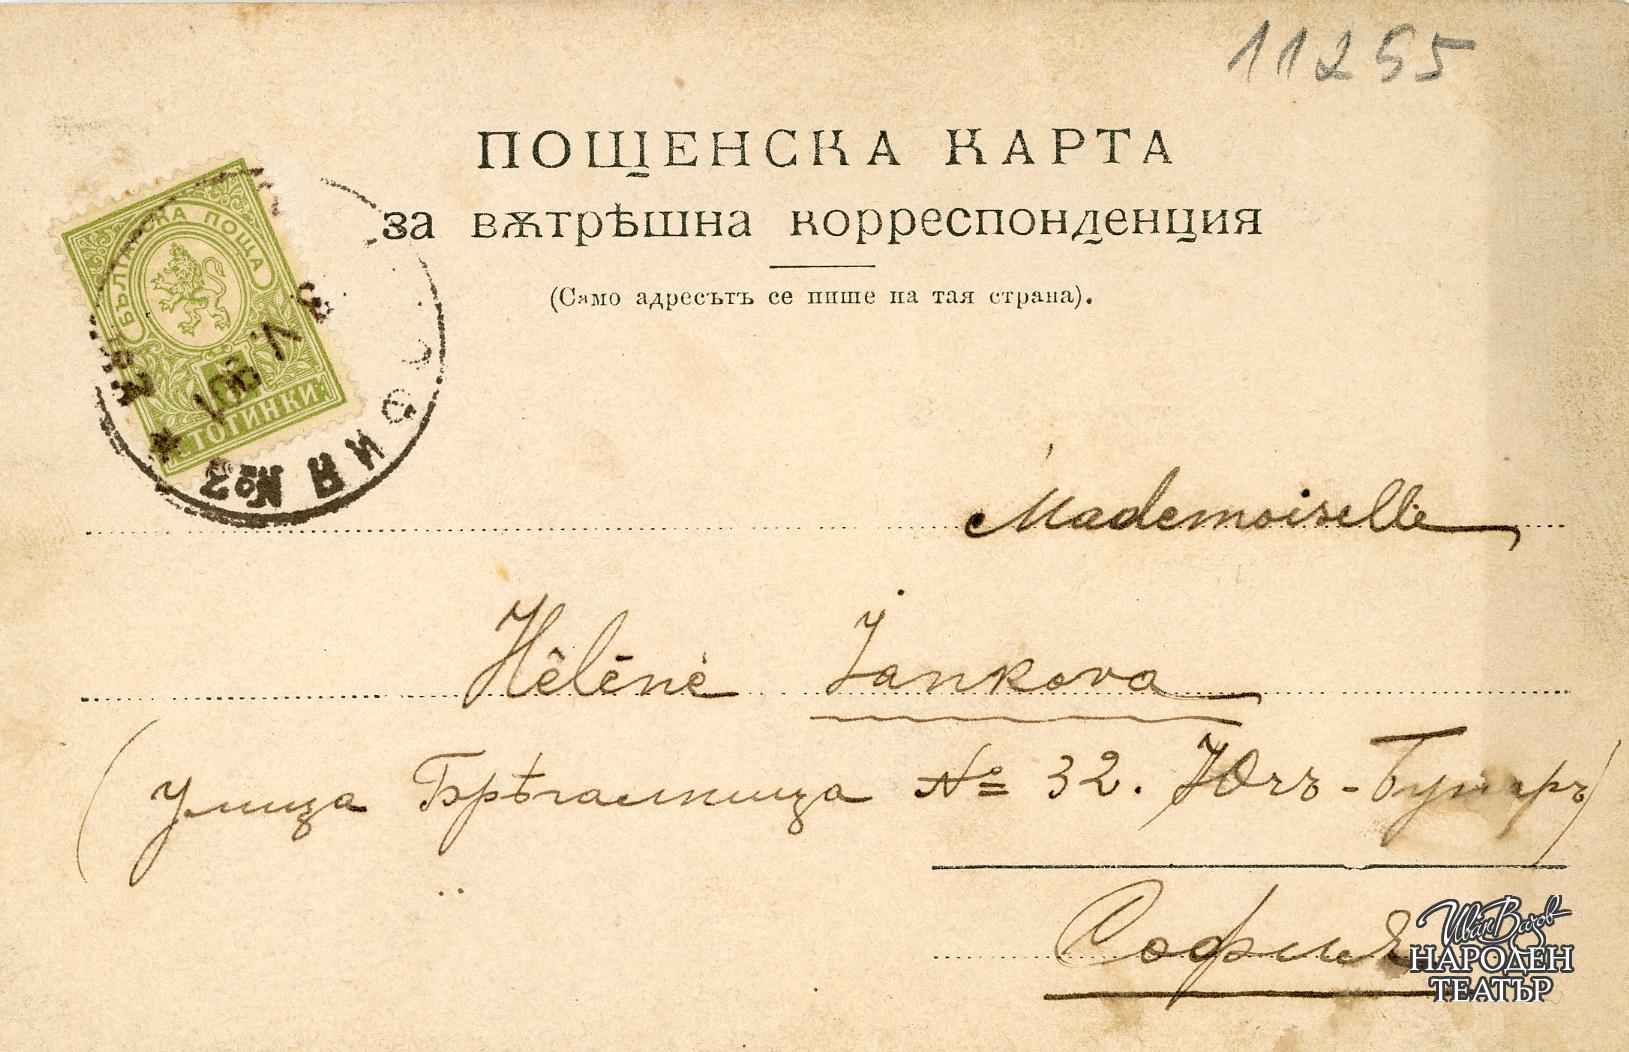 11255
ПОЩЕНСКА КАРТА
за вѫтрѣшна корреспонденция
(Само адресътъ се пише на тая страна).
БЪЛГАРСКА ПОЩА
5
СТОТИНКИ
СОФИЯ №3
Mademoiselle
Hêlēnė Jankova
(улица Брѣгалница № 32. Ючъ-Бунаръ)
София
Иван Вазов
НАРОДЕН
ТЕАТЪР